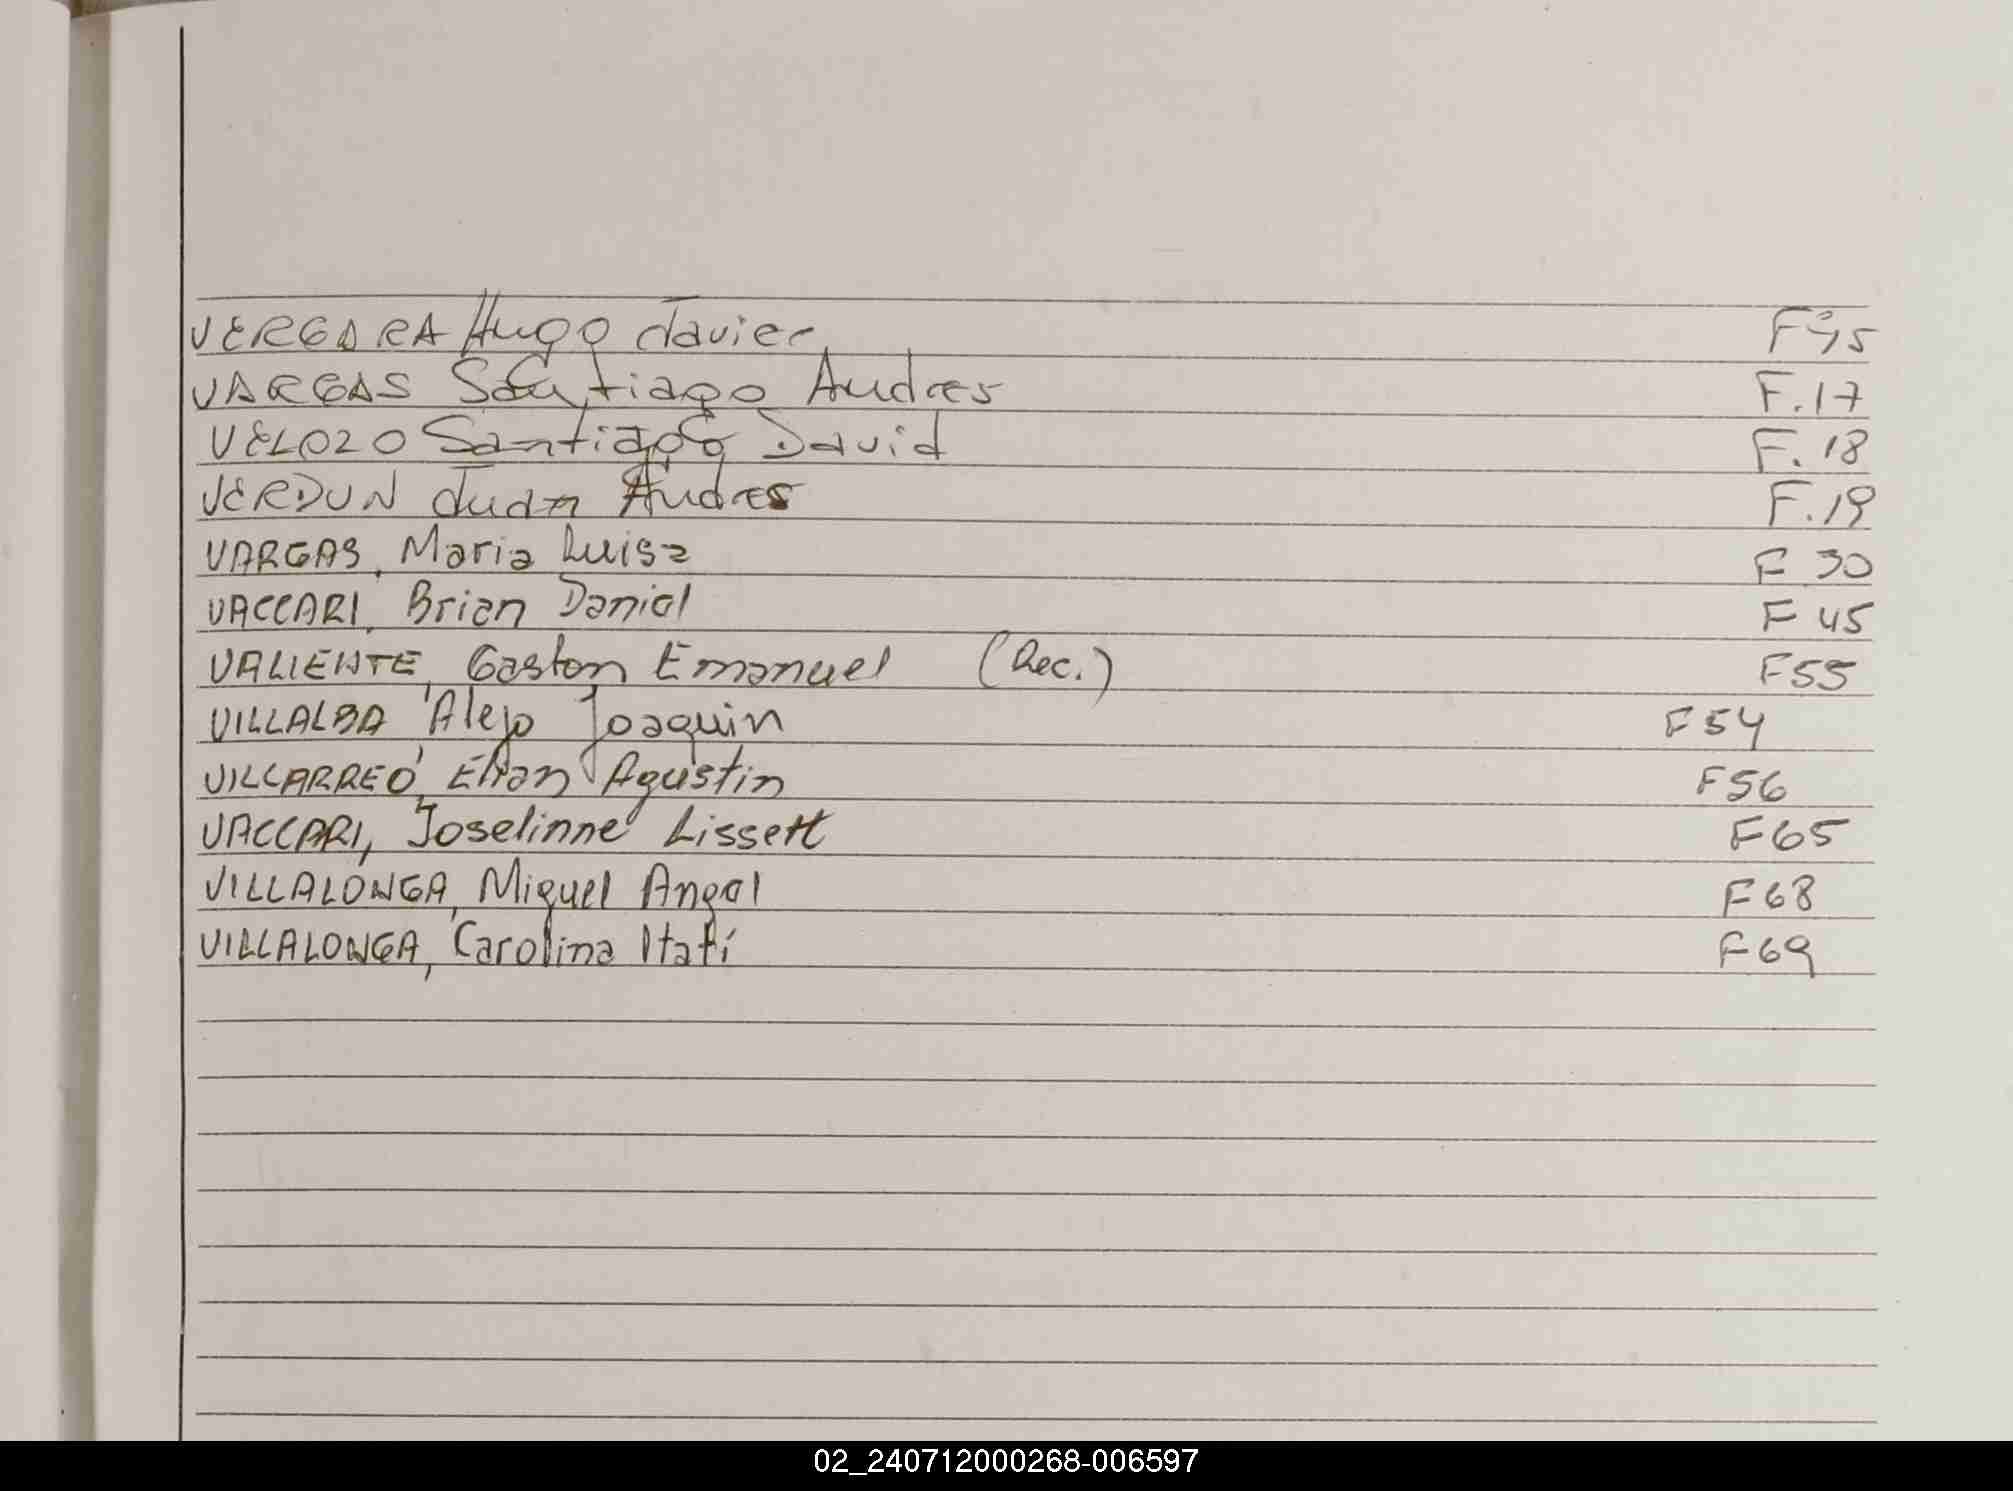 VERGARA Hugo Javier F°15
VARGAS Santiago Andres F.17
VELOZO Santiago David F. 18
VERDUN Juan Andres F.19
VARGAS, Maria Luisa F 30
VACCARI, Brian Daniel F 45
VALIENTE, Gaston Emanuel (Rec.) F55
VILLALBA, Alejo Joaquin F54
VILLARREO, Elian Agustin F56
VACCARI, Joselinne Lissett F65
VILLALONGA, Miguel Angel F68
VILLALONGA, Carolina Itatí F69
02_240712000268-006597